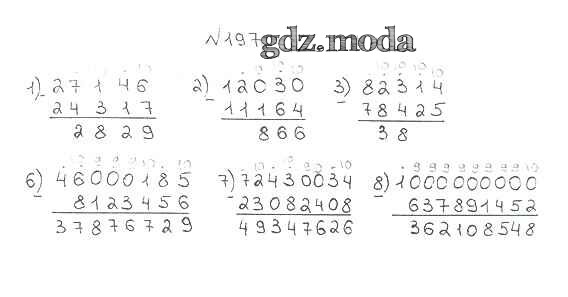 №197 gdz.moda
1) 27146 2) 12030 3) 82314
- 24317 - 11164 - 78425
2829 866 38
6) 46000185 7) 72430034 8) 1000000000
- 8123456 - 23082408 - 637891452
37876729 49347626 362108548